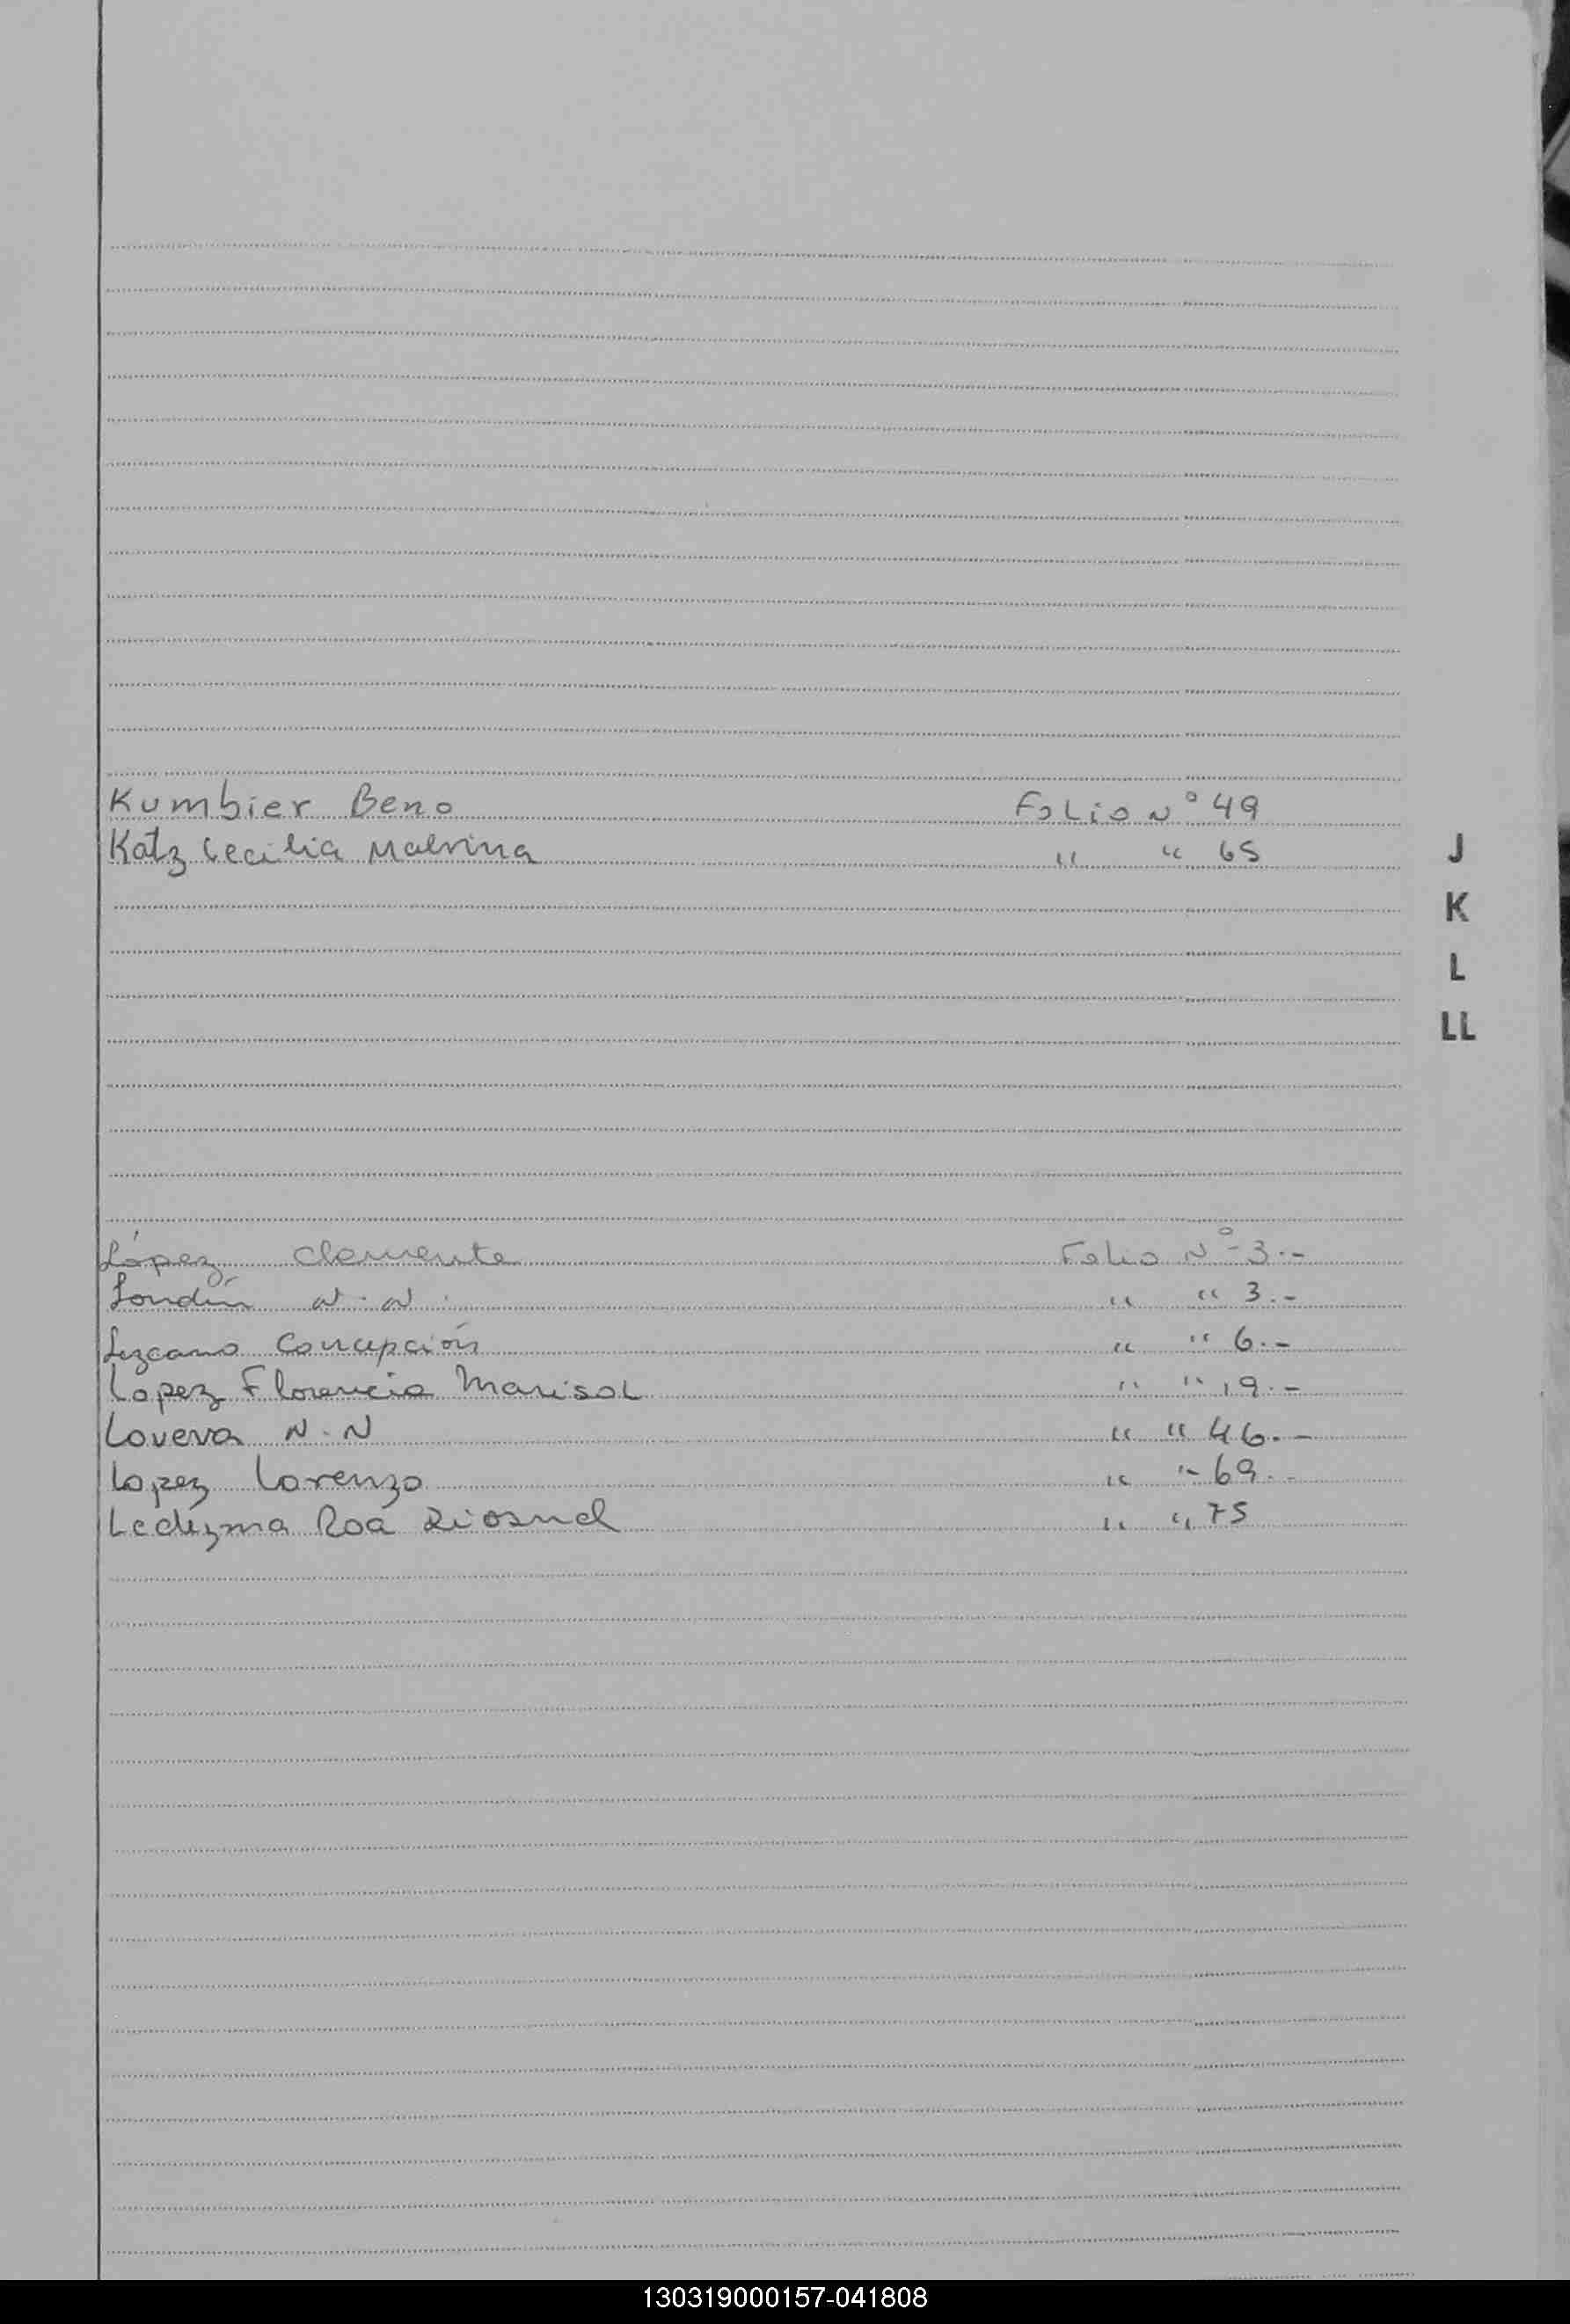 Kumbier Beno Folio N° 49
Katz Cecilia Malvina " " 65
J
K
L
LL
López Clemente Folio N° 3.-
Londín N.N. " " 3.-
Lezcano Concepción " " 6.-
Lopez Florencia Marisol " " 19.-
N.N " " 46.-
Lopez Lorenzo " " 69.-
Ledezma Roa " " 75
130319000157-041808